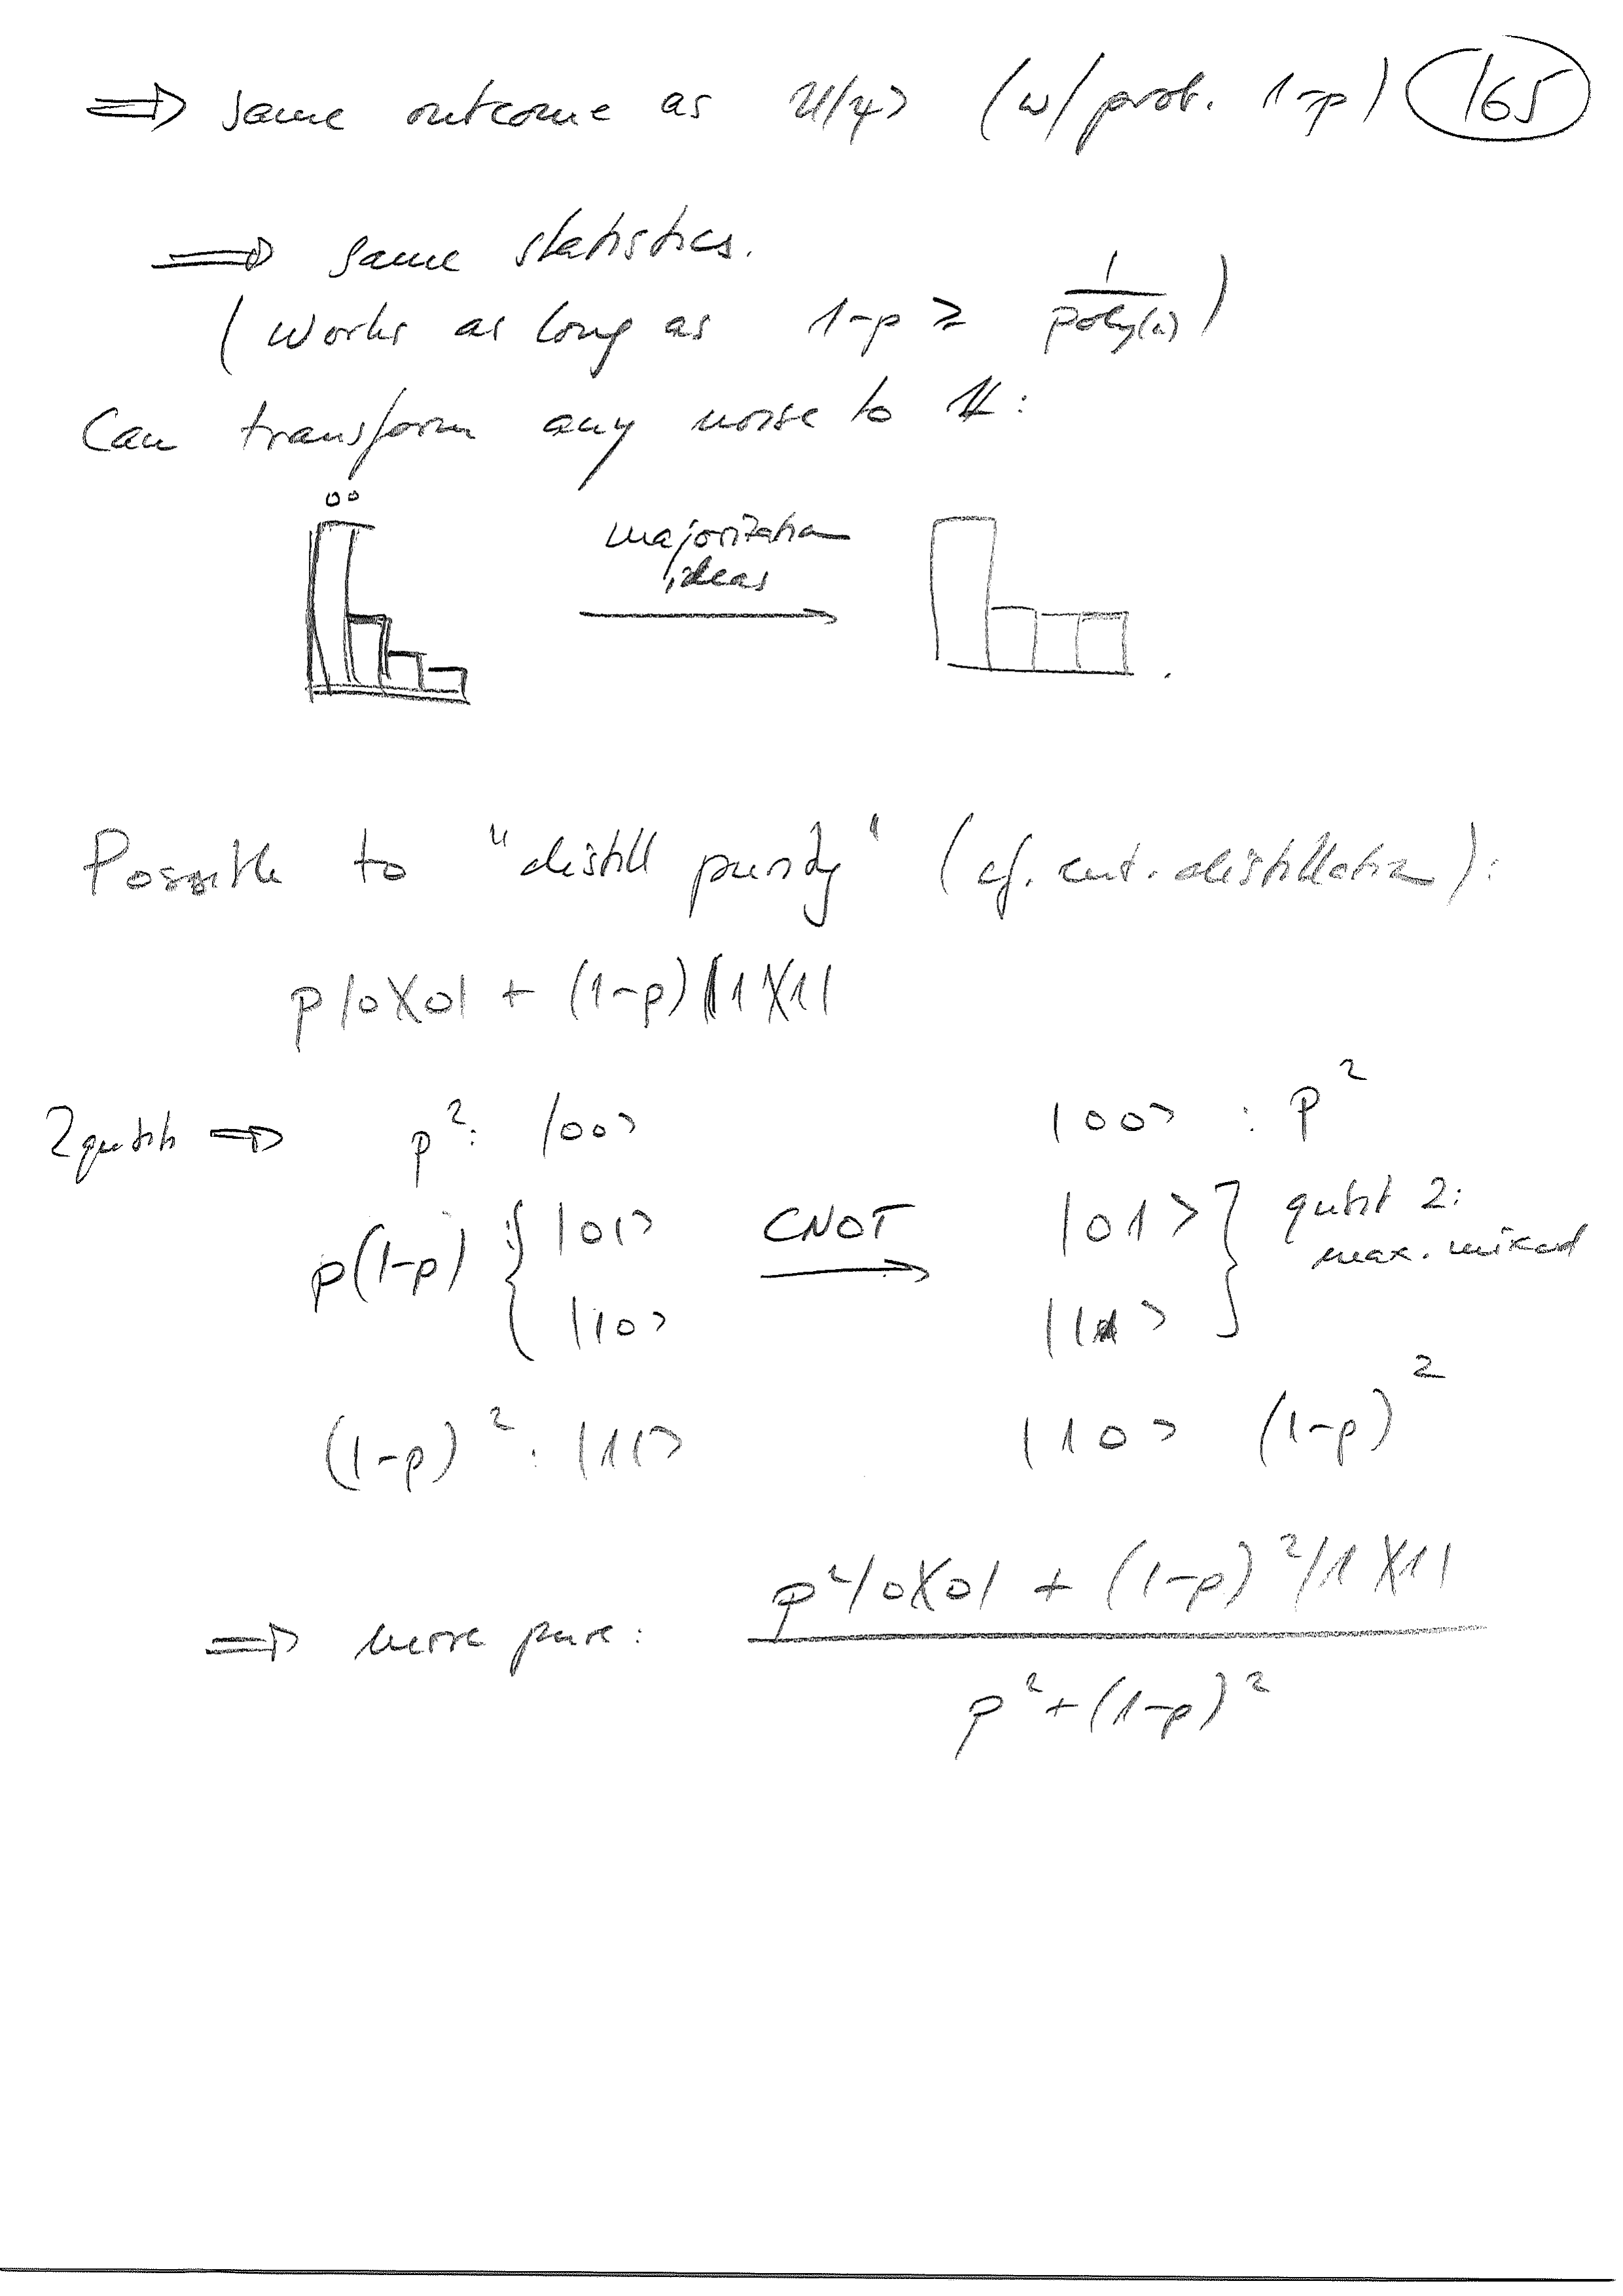 ⇒ same outcome as U|ψ> (w/ prob. 1-p) 165
⇒ same statistics.
(works as long as 1-p ≥ 1/poly(n))
Can transform any noise to 𝟙:
00
majorization
ideas
Possible to "distill purity" (cf. ent. distillation):
p|0X0| + (1-p)|1X1|
2 qubits ⇒ p²: |00> |00> : p²
p(1-p) { |01> CNOT → |01> } qubit 2:
max. mixed
|10> |11>
(1-p)²: |11> |10> (1-p)²
⇒ more pure: p²|0X0| + (1-p)²|1X1|
p² + (1-p)²